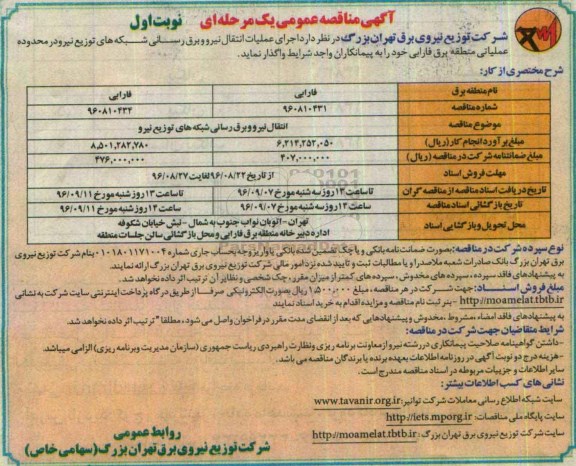 آگهی مناقصه عمومی یک مرحله ای نوبت اول
شرکت توزیع نیروی برق تهران بزرگ در نظر دارد اجرای عملیات انتقال نیرو و برق رسانی شبکه های توزیع نیرو در محدوده
عملیاتی منطقه برق فارابی خود را به پیمانکاران واجد شرایط واگذار نماید.
شرح مختصری از کار:
نام منطقه برق فارابی فارابی
شماره مناقصه ۹۶۰۸۱۰۴۳۱ ۹۶۰۸۱۰۴۳۲
موضوع مناقصه انتقال نیرو و برق رسانی شبکه های توزیع نیرو
مبلغ برآورد انجام کار (ریال) ۶,۲۱۴,۲۵۲,۰۵۰ ۸,۵۰۱,۲۸۲,۷۸۰
مبلغ ضمانتنامه شرکت در مناقصه (ریال) ۴۰۷,۰۰۰,۰۰۰ ۴۷۶,۰۰۰,۰۰۰
مهلت فروش اسناد از تاریخ ۹۶/۰۸/۲۲ لغایت ۹۶/۰۸/۲۷
تاریخ دریافت اسناد مناقصه از مناقصه گران تا ساعت ۱۳ روز سه شنبه مورخ ۹۶/۰۹/۰۷ تا ساعت ۱۳ روز شنبه مورخ ۹۶/۰۹/۱۱
تاریخ بازگشائی اسناد مناقصه ساعت ۱۴ روز سه شنبه مورخ ۹۶/۰۹/۰۷ ساعت ۱۴ روز شنبه مورخ ۹۶/۰۹/۱۱
محل تحویل و بازگشایی اسناد تهران - اتوبان نواب جنوب به شمال - نبش خیابان شکوفه
اداره دبیرخانه منطقه برق فارابی و محل بازگشائی سالن جلسات منطقه
نوع سپرده شرکت در مناقصه: بصورت ضمانت نامه بانکی و یا چک تضمین شده بانکی یا واریز وجه بحساب جاری شماره ۰۱۰۱۸۰۱۱۷۱۰۰۴ بنام شرکت توزیع نیروی
برق تهران بزرگ بانک صادرات شعبه ملاصدرا و یا مطالبات ثبت و تایید شده نزد امور مالی شرکت توزیع نیروی برق تهران بزرگ ارائه نمایند.
به پیشنهادهای فاقد سپرده، سپرده های مخدوش، سپرده های کمتر از میزان مقرر، چک شخصی و نظایر آن ترتیب اثر داده نخواهد شد.
مبلغ فروش اسناد: جهت شرکت در هر مناقصه، مبلغ ۱,۵۰۰,۰۰۰ ریال بصورت الکترونیکی صرفا از طریق درگاه پرداخت اینترنتی سایت شرکت به نشانی
http://moamelat.tbtb.ir - بنر ثبت نام مناقصه و مزایده اقدام به خرید اسناد نمایند
به پیشنهادهای فاقد امضاء، مشروط، مخدوش و پیشنهادهایی که بعد از انقضای مدت مقرر در فراخوان واصل می شود، مطلقا" ترتیب اثر داده نخواهد شد.
شرایط متقاضیان جهت شرکت در مناقصه:
-داشتن گواهینامه صلاحیت پیمانکاری در رشته نیرو از معاونت برنامه ریزی ونظارت راهبردی ریاست جمهوری (سازمان مدیریت و برنامه ریزی) الزامی میباشد.
-هزینه درج دو نوبت آگهی در روزنامه اطلاعات بعهده برنده یا برندگان مناقصه می باشد.
سایر اطلاعات و جزییات مربوطه در اسناد مناقصه مندرج است.
نشانی های کسب اطلاعات بیشتر:
سایت شبکه اطلاع رسانی معاملات شرکت توانیر: www.tavanir.org.ir
سایت پایگاه ملی مناقصات: http://iets.mporg.ir
سایت شرکت توزیع نیروی برق تهران بزرگ: http://moamelat.tbtb.ir
روابط عمومی
شرکت توزیع نیروی برق تهران بزرگ (سهامی خاص)